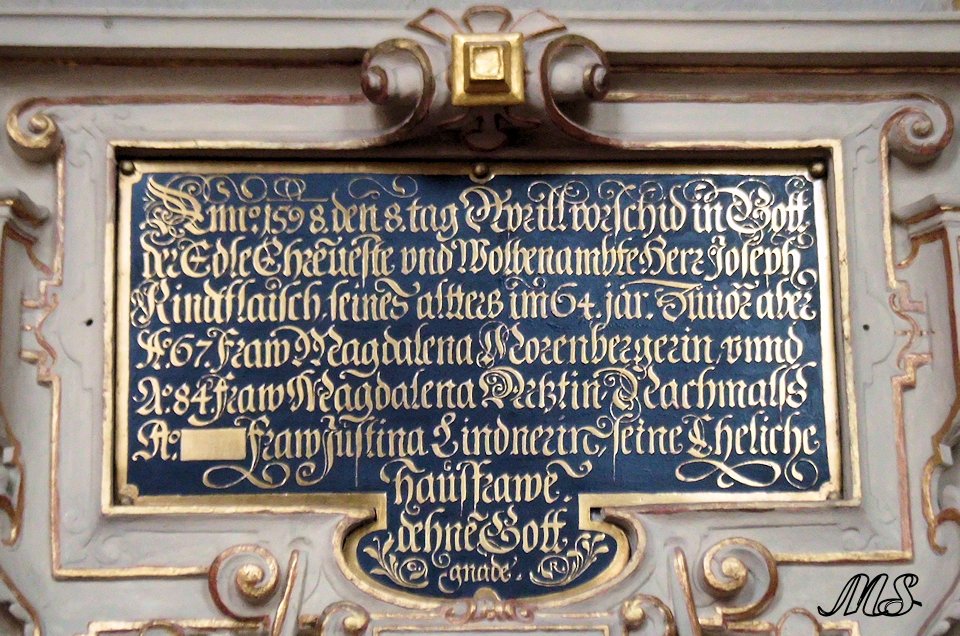 Anno 1598. den 8. tag Apprill vorschid in Gott
der Edle Ehrnueste vnd Wolbenambte Herr Joseph
Rindtflaisch, seines altters im 64. jar. Zuuor aber
A:o 67. Fraw Magdalena Norenbergerin, vnnd
A:o 84. fraw Magdalena Örtztin, Nachmalls
A:o Fraw Justina Lindnerin, seine Eheliche
haüsfrawe.
dehnē Gott
gnade.
MS